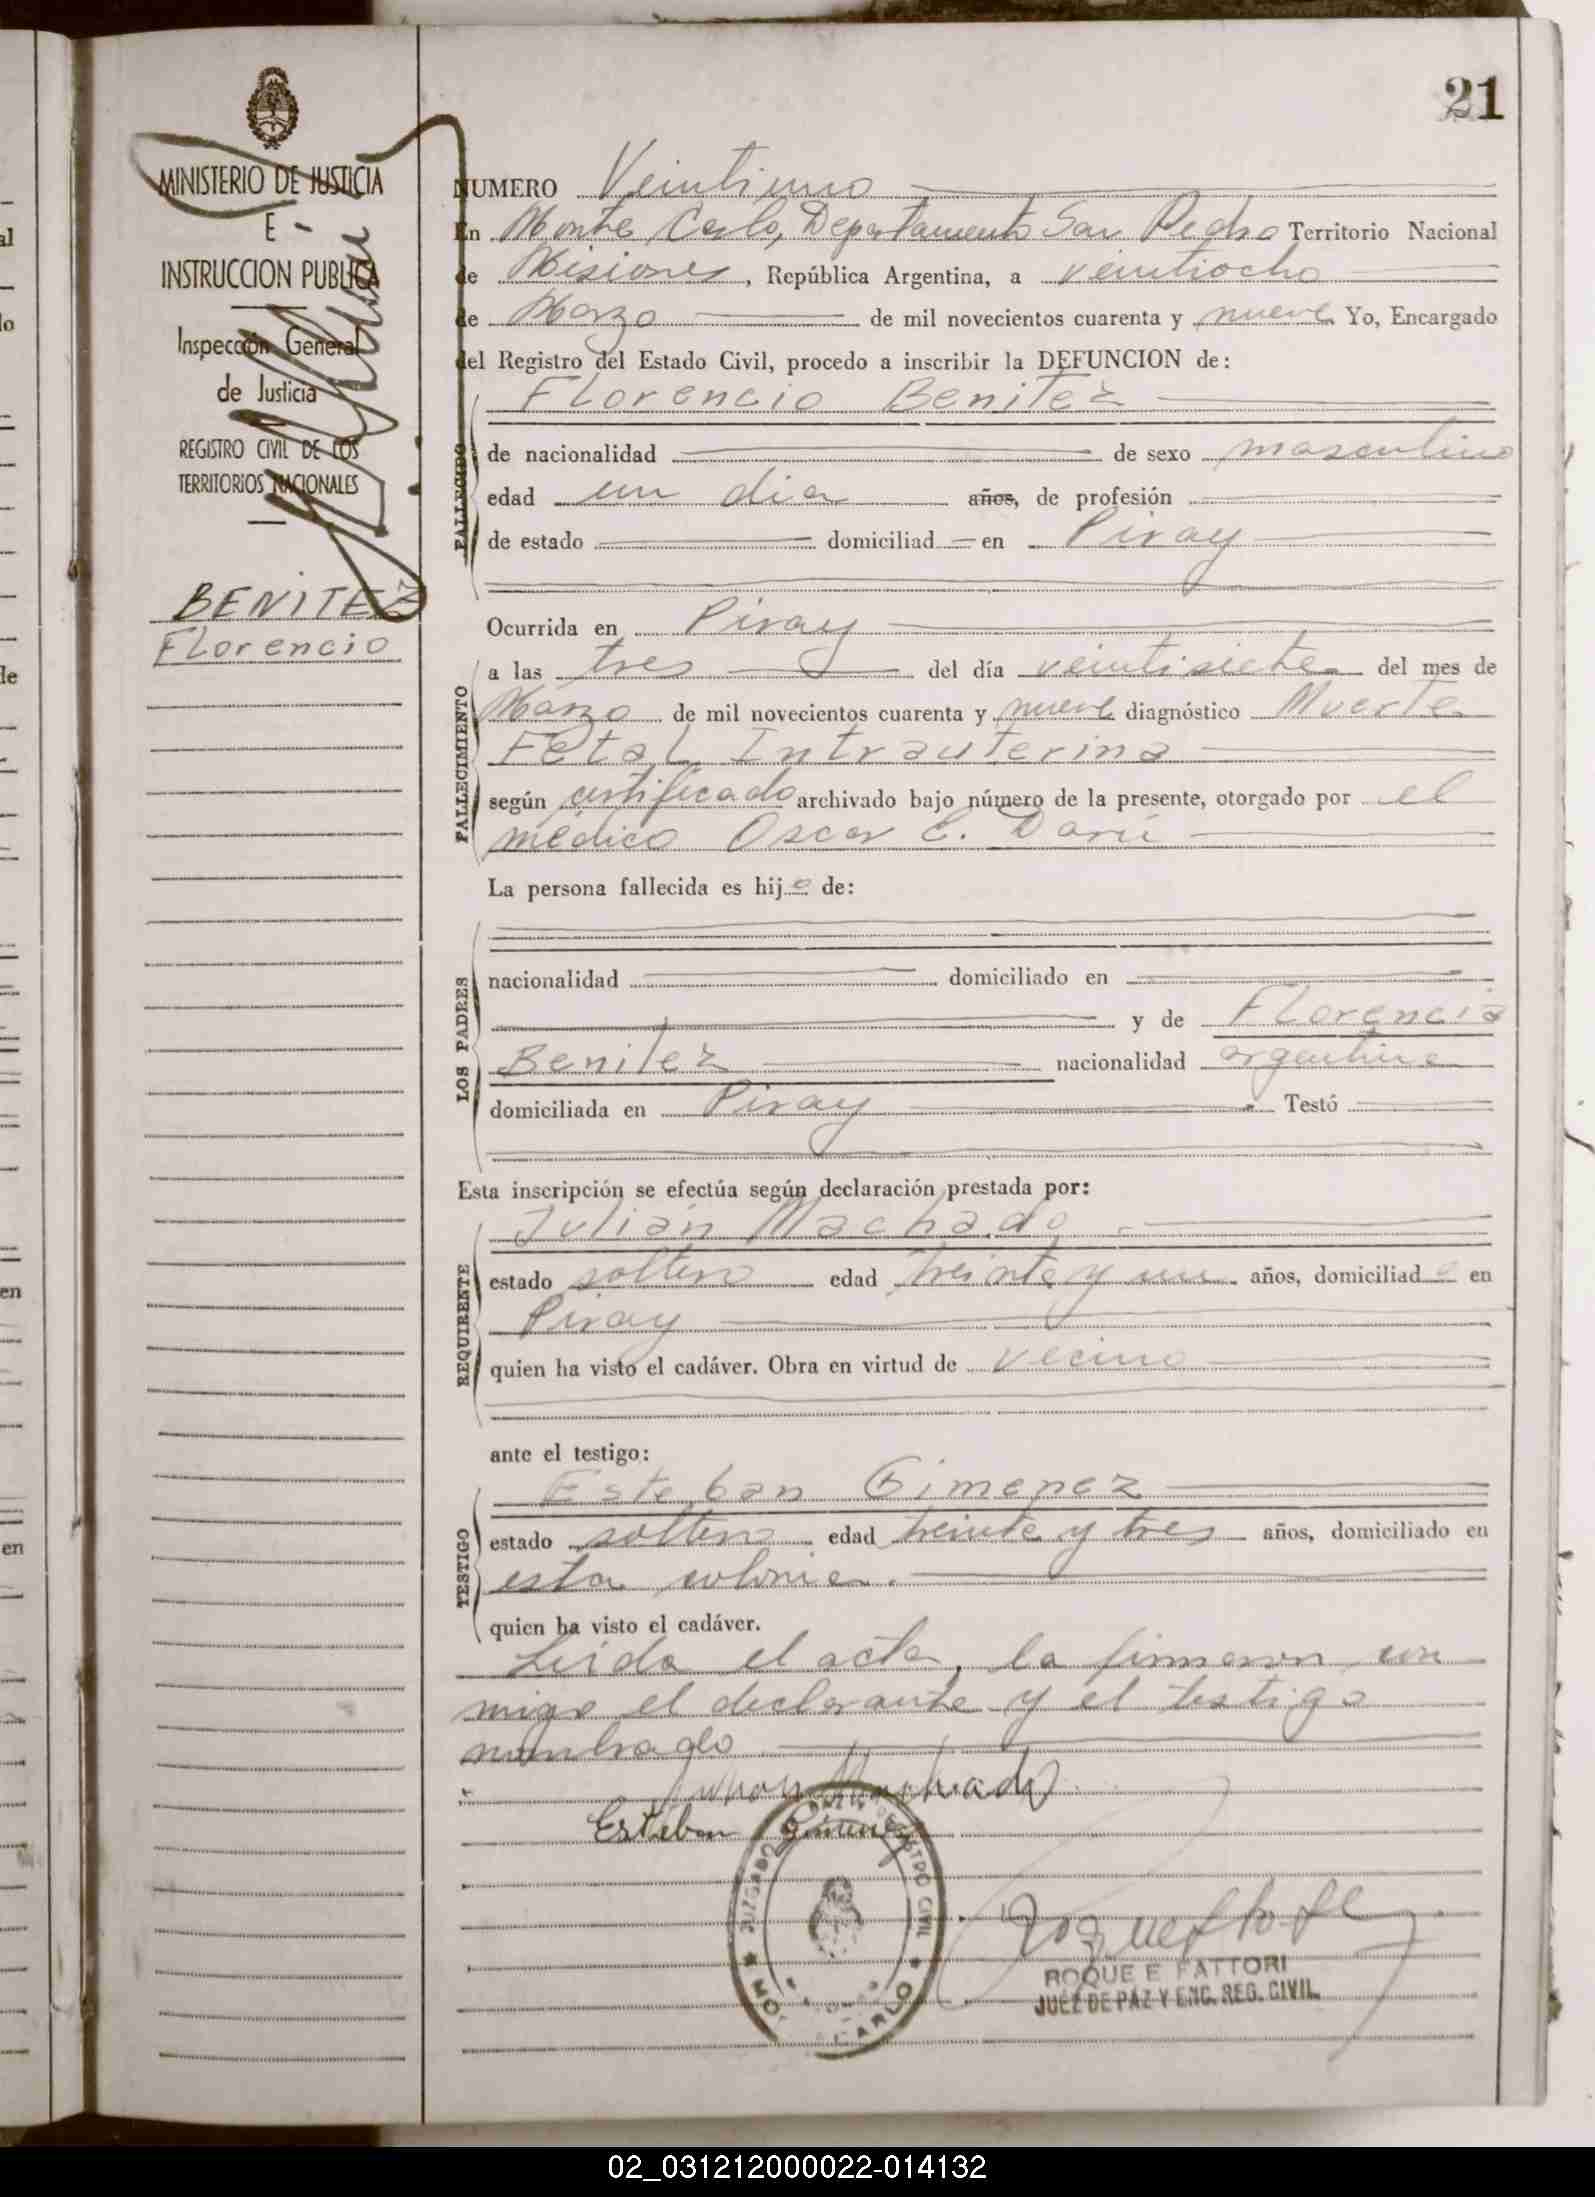 21
MINISTERIO DE JUSTICIA
E
INSTRUCCION PUBLICA
Inspección General
de Justicia
REGISTRO CIVIL DE LOS
TERRITORIOS NACIONALES
BENITEZ
Florencio
NUMERO Veintiuno
En Monte Carlo, Departamento San Pedro Territorio Nacional
de Misiones, República Argentina, a veintiocho
de Marzo de mil novecientos cuarenta y nueve Yo, Encargado
del Registro del Estado Civil, procedo a inscribir la DEFUNCION de:
Florencio Benitez
FALLECIDO
de nacionalidad de sexo masculino
edad un dia años, de profesión
de estado domiciliad en Piray
Ocurrida en Piray
FALLECIMIENTO
a las tres del día veintisiete del mes de
Marzo de mil novecientos cuarenta y nueve diagnóstico Muerte
Fetal Intrauterina
según certificado archivado bajo número de la presente, otorgado por el
médico Oscar C. Darú
La persona fallecida es hijo de:
LOS PADRES
nacionalidad domiciliado en
y de Florencia
Benitez nacionalidad argentina
domiciliada en Piray Testó
Esta inscripción se efectúa según declaración prestada por:
REQUIRENTE
Julián Machado
estado soltero edad treinta y un años, domiciliado en
Piray
quien ha visto el cadáver. Obra en virtud de vecino
ante el testigo:
TESTIGO
Esteban Gimenez
estado soltero edad treinta y tres años, domiciliado en
esta colonia.
quien ha visto el cadáver.
Leida el acta, la firmaron con
migo el declarante y el testigo
nombrado
Julian Machado
Esteban Gimenez
JUZGADO DE PAZ Y REGISTRO CIVIL
MONTE CARLO
ROQUE E. FATTORI
JUEZ DE PAZ Y ENC. REG. CIVIL
02_031212000022-014132